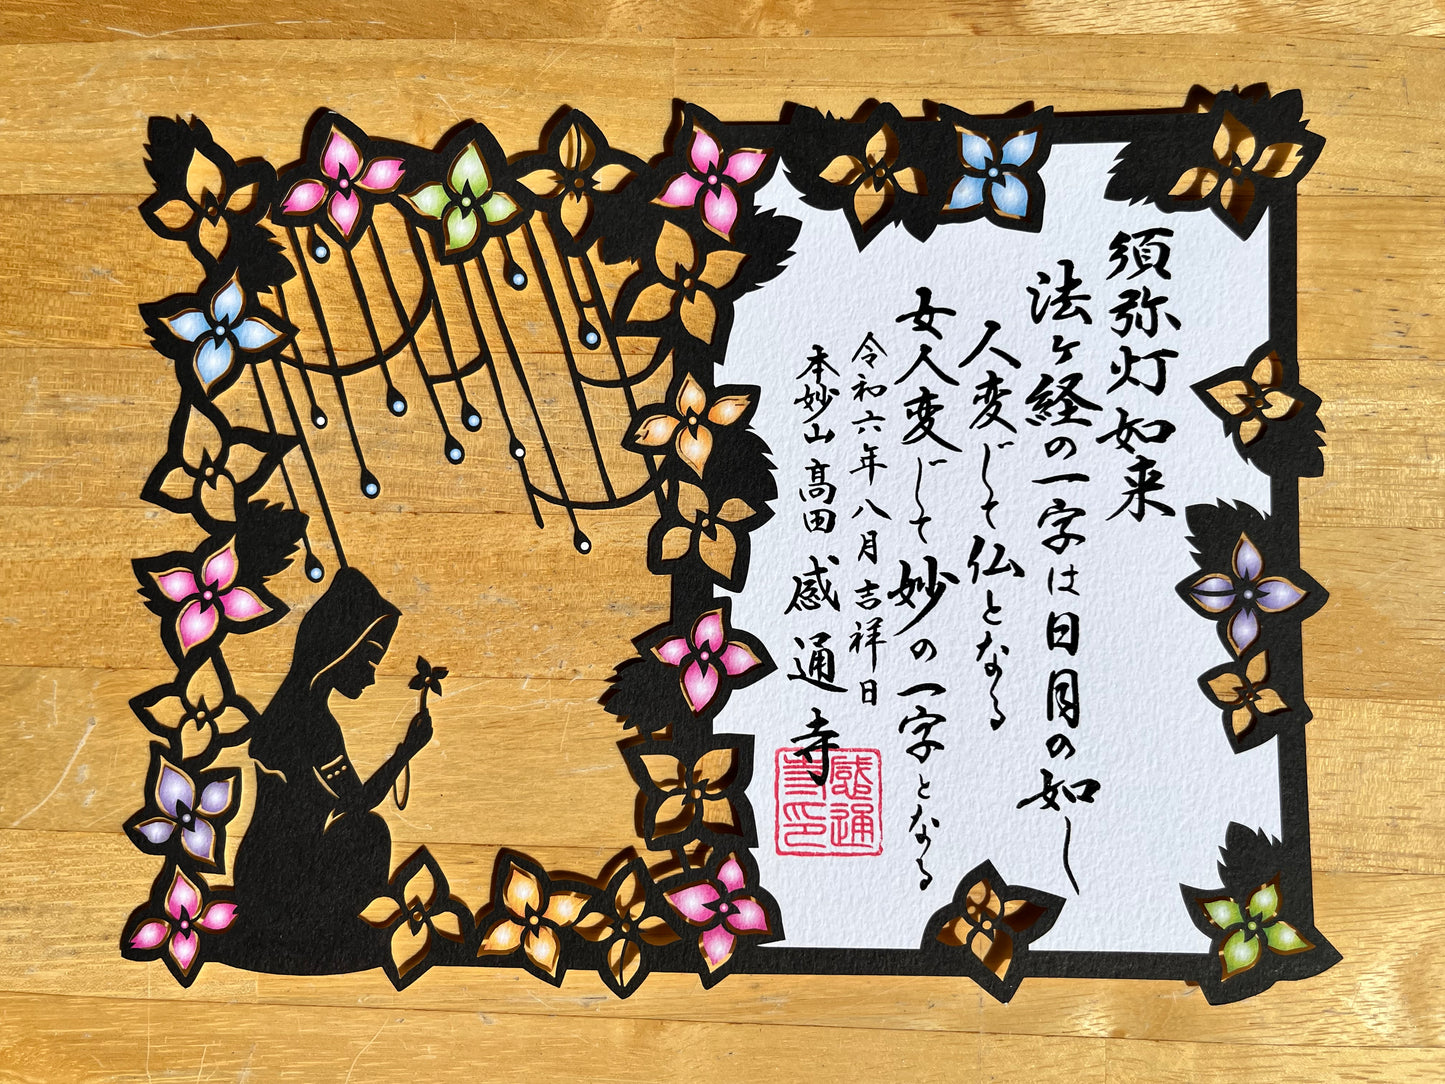 須弥灯如来
法ヶ経の一字は日月の如し
人変じて仏となる
女人変じて妙の一字となる
令和六年八月吉祥日
本妙山高田感通寺
感通寺印